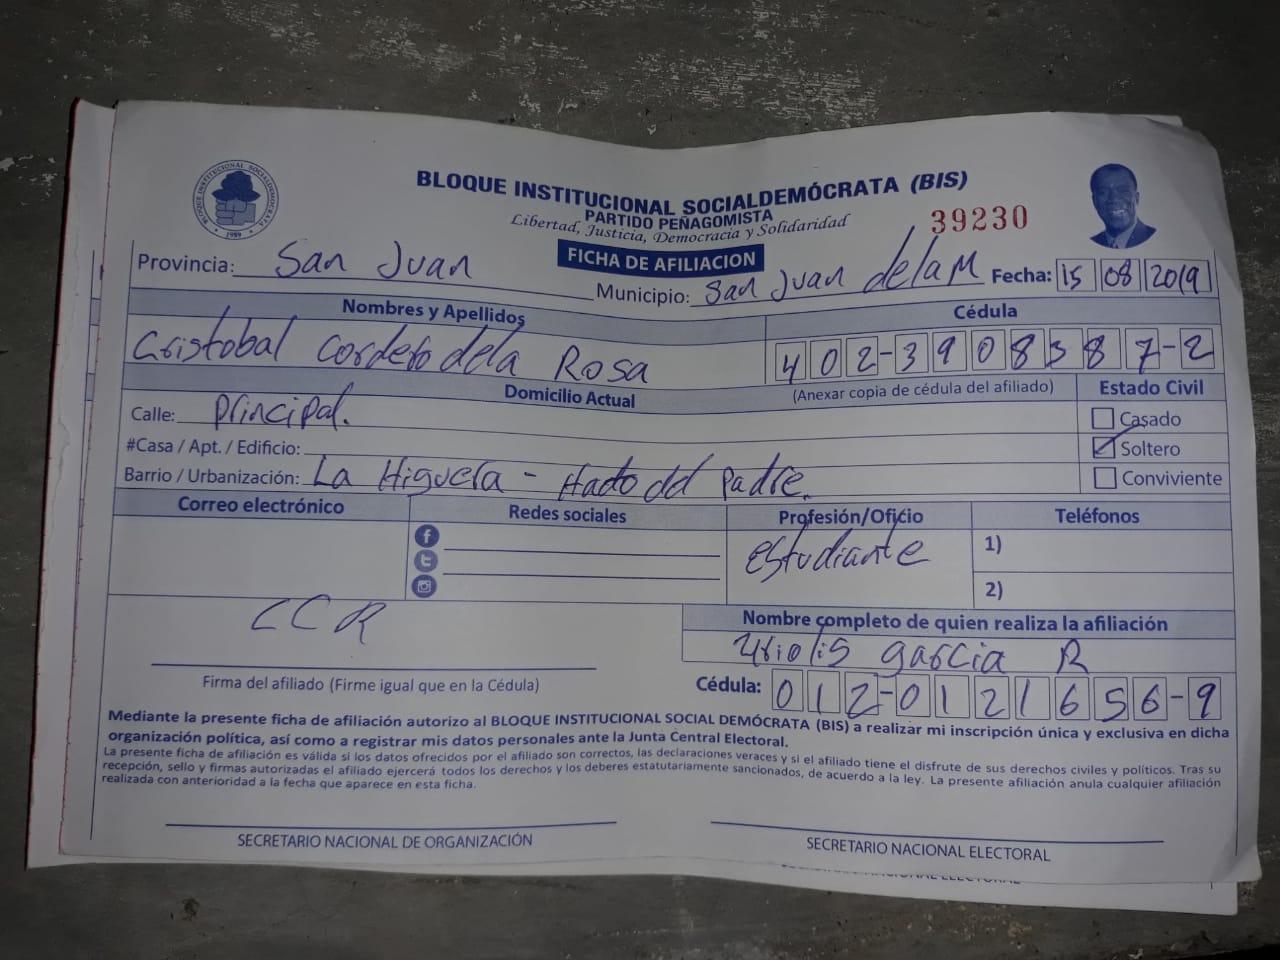 BLOQUE INSTITUCIONAL SOCIALDEMÓCRATA (BIS)
PARTIDO PEÑAGOMISTA
Libertad, Justicia, Democracia y Solidaridad
39230
BLOQUE INSTITUCIONAL SOCIALDEMOCRATA
1989
FICHA DE AFILIACION
Provincia: San Juan
Municipio: San Juan dela M
Fecha: 15 08 2019
Nombres y Apellidos
Cédula
Cristobal Cordero dela Rosa
402-3908387-2
Domicilio Actual
(Anexar copia de cédula del afiliado)
Estado Civil
Calle: principal.
Casado
#Casa / Apt. / Edificio:
Soltero
Barrio / Urbanización: La Higuera - Hato del Padre.
Conviviente
Correo electrónico
Redes sociales
Profesión/Oficio
Teléfonos
estudiante
1)
2)
CCR
Nombre completo de quien realiza la afiliación
garcia R
Firma del afiliado (Firme igual que en la Cédula)
Cédula: 012-0121656-9
Mediante la presente ficha de afiliación autorizo al BLOQUE INSTITUCIONAL SOCIAL DEMÓCRATA (BIS) a realizar mi inscripción única y exclusiva en dicha
organización política, así como a registrar mis datos personales ante la Junta Central Electoral.
La presente ficha de afiliación es válida si los datos ofrecidos por el afiliado son correctos, las declaraciones veraces y si el afiliado tiene el disfrute de sus derechos civiles y políticos. Tras su
recepción, sello y firmas autorizadas el afiliado ejercerá todos los derechos y los deberes estatutariamente sancionados, de acuerdo a la ley. La presente afiliación anula cualquier afiliación
realizada con anterioridad a la fecha que aparece en esta ficha.
SECRETARIO NACIONAL DE ORGANIZACIÓN
SECRETARIO NACIONAL ELECTORAL